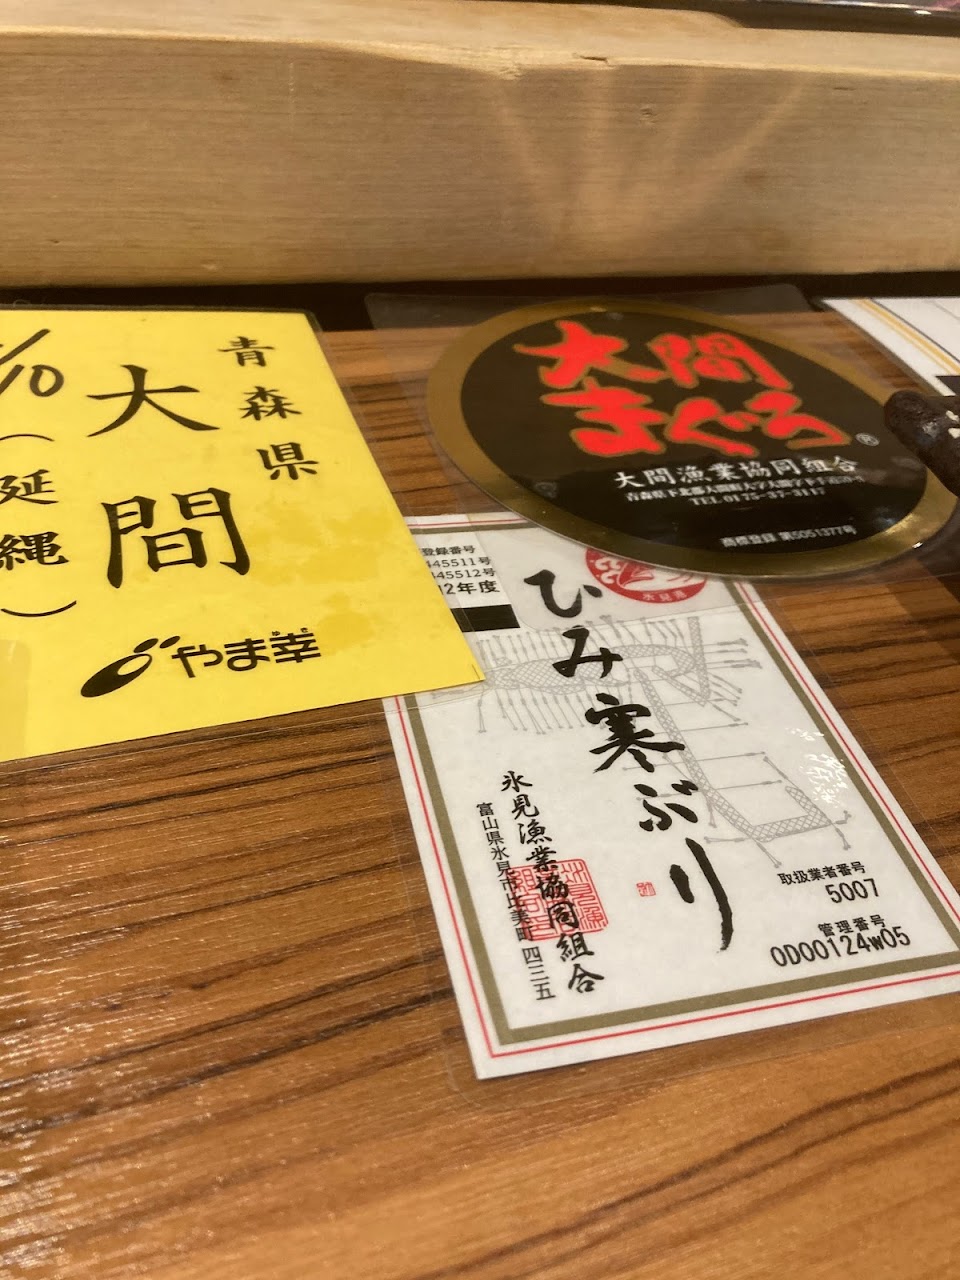 青森県
大間
(延縄)
/10
やま幸
大間
まぐろ
®
大間漁業協同組合
TEL 0175-37-3117
商標登録 第5051377号
登録番号
445511号
445512号
2年度
ひみ寒ぶり
氷見漁業協同組合
富山県氷見市比美町四三五
取扱業者番号
5007
管理番号
0D00124w05